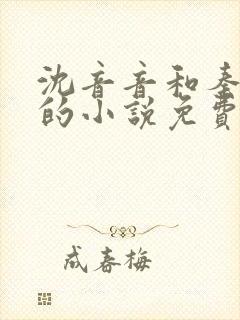 沈音音和秦
的小說免費
成春梅